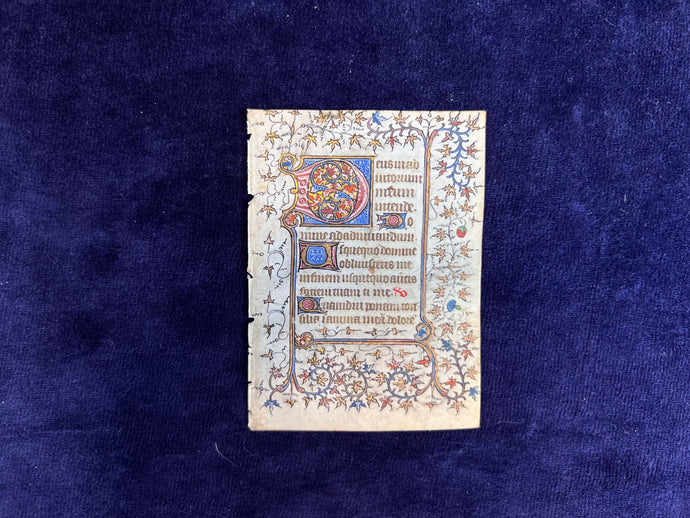 Deus in ad
iutorium
meum
intende
Do
mine ad adiuuandum
Usquequo domine
obliuisceris me
in finem usquequo auertis
faciem tuam a me
Quamdiu ponam con
silia in anima mea dolore